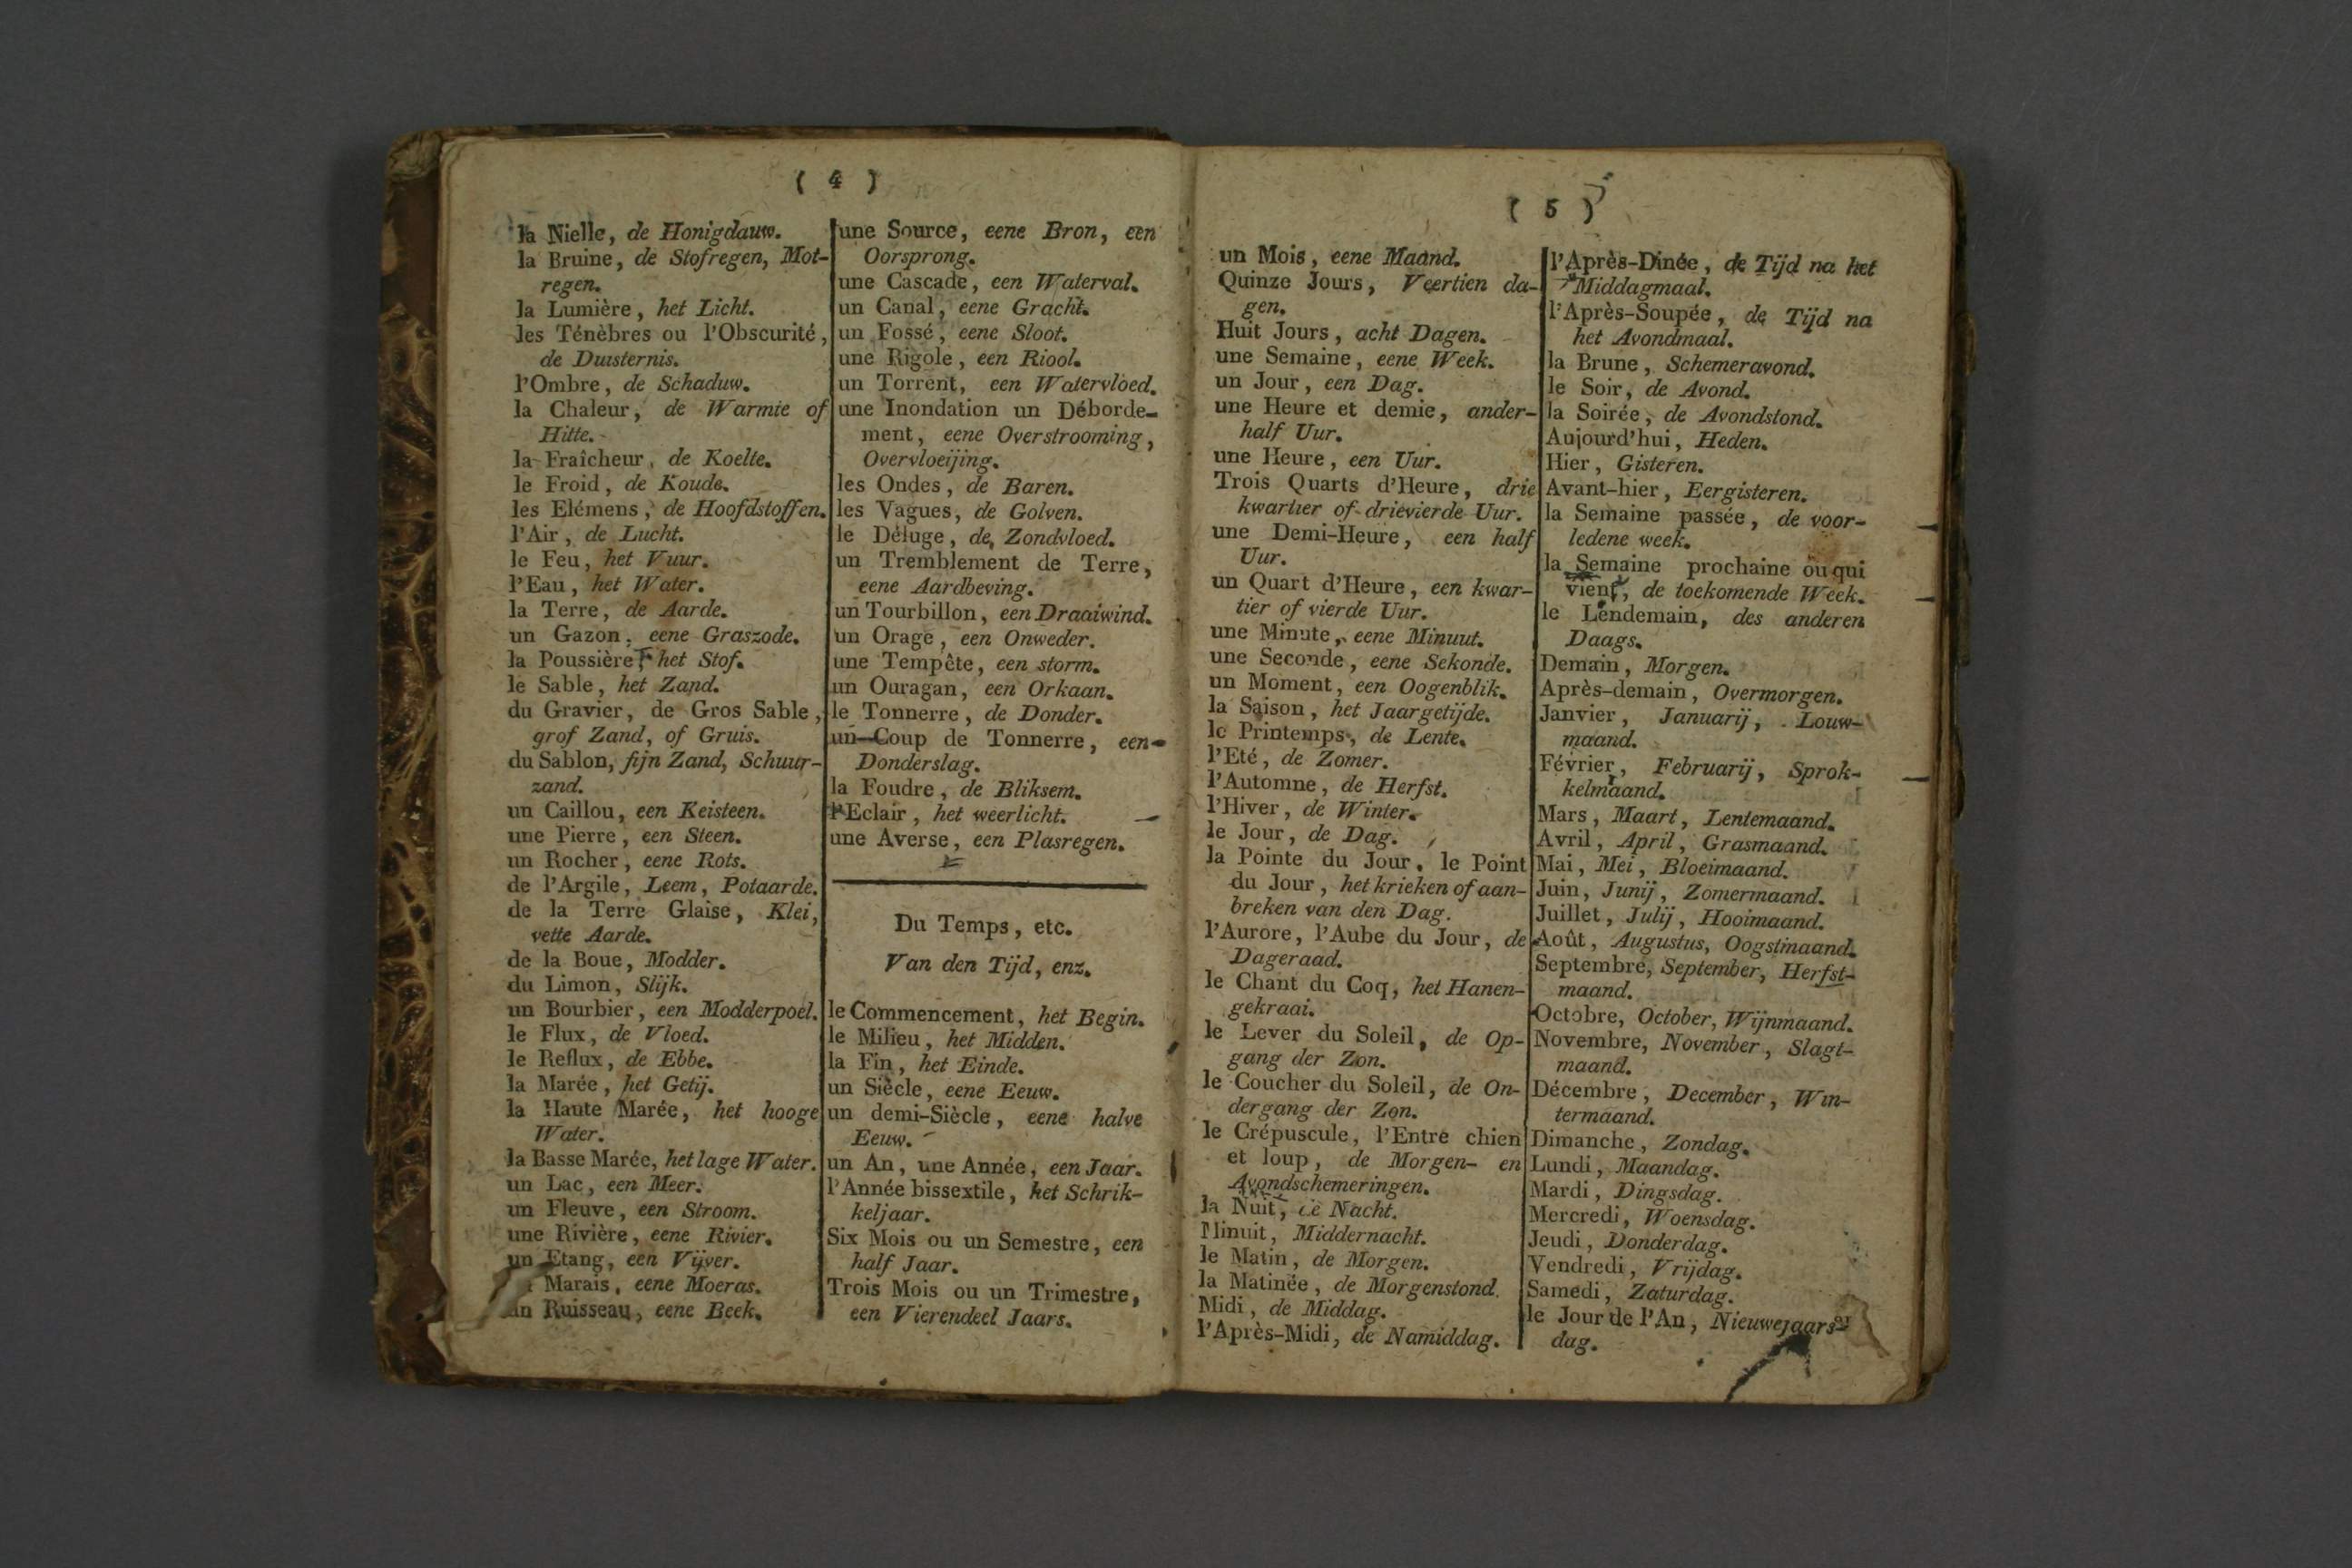 ( 4 )
la Nielle, de Honigdauw.
la Bruine, de Stofregen, Mot-
regen.
la Lumière, het Licht.
les Ténèbres ou l'Obscurité,
de Duisternis.
l'Ombre, de Schaduw.
la Chaleur, de Warmte of
Hitte.
la Fraîcheur, de Koelte.
le Froid, de Koude.
les Elémens, de Hoofdstoffen.
l'Air, de Lucht.
le Feu, het Vuur.
l'Eau, het Water.
la Terre, de Aarde.
un Gazon, eene Graszode.
la Poussière, het Stof.
le Sable, het Zand.
du Gravier, de Gros Sable,
grof Zand, of Gruis.
du Sablon, fijn Zand, Schuur-
zand.
un Caillou, een Keisteen.
une Pierre, een Steen.
un Rocher, eene Rots.
de l'Argile, Leem, Potaarde.
de la Terre Glaise, Klei,
vette Aarde.
de la Boue, Modder.
du Limon, Slijk.
un Bourbier, een Modderpoel.
le Flux, de Vloed.
le Reflux, de Ebbe.
la Marée, het Getij.
la Haute Marée, het hooge
Water.
la Basse Marée, het lage Water.
un Lac, een Meer.
un Fleuve, een Stroom.
une Rivière, eene Rivier.
un Etang, een Vijver.
Marais, eene Moeras.
un Ruisseau, eene Beek.
une Source, eene Bron, een
Oorsprong.
une Cascade, een Waterval.
un Canal, eene Gracht.
un Fossé, eene Sloot.
une Rigole, een Riool.
un Torrent, een Watervloed.
une Inondation un Déborde-
ment, eene Overstrooming,
Overvloeijing.
les Ondes, de Baren.
les Vagues, de Golven.
le Déluge, de Zondvloed.
un Tremblement de Terre,
eene Aardbeving.
un Tourbillon, een Draaiwind.
un Orage, een Onweder.
une Tempête, een storm.
un Ouragan, een Orkaan.
le Tonnerre, de Donder.
un Coup de Tonnerre, een
Donderslag.
la Foudre, de Bliksem.
l'Eclair, het weerlicht.
une Averse, een Plasregen.
Du Temps, etc.
Van den Tijd, enz.
le Commencement, het Begin.
le Milieu, het Midden.
la Fin, het Einde.
un Siècle, eene Eeuw.
un demi-Siècle, eene halve
Eeuw.
un An, une Année, een Jaar.
l'Année bissextile, het Schrik-
keljaar.
Six Mois ou un Semestre, een
half Jaar.
Trois Mois ou un Trimestre,
een Vierendeel Jaars.
( 5 )
un Mois, eene Maand.
Quinze Jours, Veertien da-
gen.
Huit Jours, acht Dagen.
une Semaine, eene Week.
un Jour, een Dag.
une Heure et demie, ander-
half Uur.
une Heure, een Uur.
Trois Quarts d'Heure, drie
kwartier of drievierde Uur.
une Demi-Heure, een half
Uur.
un Quart d'Heure, een kwar-
tier of vierde Uur.
une Minute, eene Minuut.
une Seconde, eene Sekonde.
un Moment, een Oogenblik.
la Saison, het Jaargetijde.
le Printemps, de Lente.
l'Eté, de Zomer.
l'Automne, de Herfst.
l'Hiver, de Winter.
le Jour, de Dag.
la Pointe du Jour, le Point
du Jour, het krieken of aan-
breken van den Dag.
l'Aurore, l'Aube du Jour, de
Dageraad.
le Chant du Coq, het Hanen-
gekraai.
le Lever du Soleil, de Op-
gang der Zon.
le Coucher du Soleil, de On-
dergang der Zon.
le Crépuscule, l'Entre chien
et loup, de Morgen- en
Avondschemeringen.
la Nuit, de Nacht.
Minuit, Middernacht.
le Matin, de Morgen.
la Matinée, de Morgenstond.
Midi, de Middag.
l'Après-Midi, de Namiddag.
l'Après-Dinée, de Tijd na het
Middagmaal.
l'Après-Soupée, de Tijd na
het Avondmaal.
la Brune, Schemeravond.
le Soir, de Avond.
la Soirée, de Avondstond.
Aujourd'hui, Heden.
Hier, Gisteren.
Avant-hier, Eergisteren.
la Semaine passée, de voor-
ledene week.
la Semaine prochaine ou qui
vient, de toekomende Week.
le Lendemain, des anderen
Daags.
Demain, Morgen.
Après-demain, Overmorgen.
Janvier, Januarij, Louw-
maand.
Février, Februarij, Sprok-
kelmaand.
Mars, Maart, Lentemaand.
Avril, April, Grasmaand.
Mai, Mei, Bloeimaand.
Juin, Junij, Zomermaand.
Juillet, Julij, Hooimaand.
Août, Augustus, Oogstmaand.
Septembre, September, Herfst-
maand.
Octobre, October, Wijnmaand.
Novembre, November, Slagt-
maand.
Décembre, December, Win-
termaand.
Dimanche, Zondag.
Lundi, Maandag.
Mardi, Dingsdag.
Mercredi, Woensdag.
Jeudi, Donderdag.
Vendredi, Vrijdag.
Samedi, Zaturdag.
le Jour de l'An, Nieuwejaars-
dag.